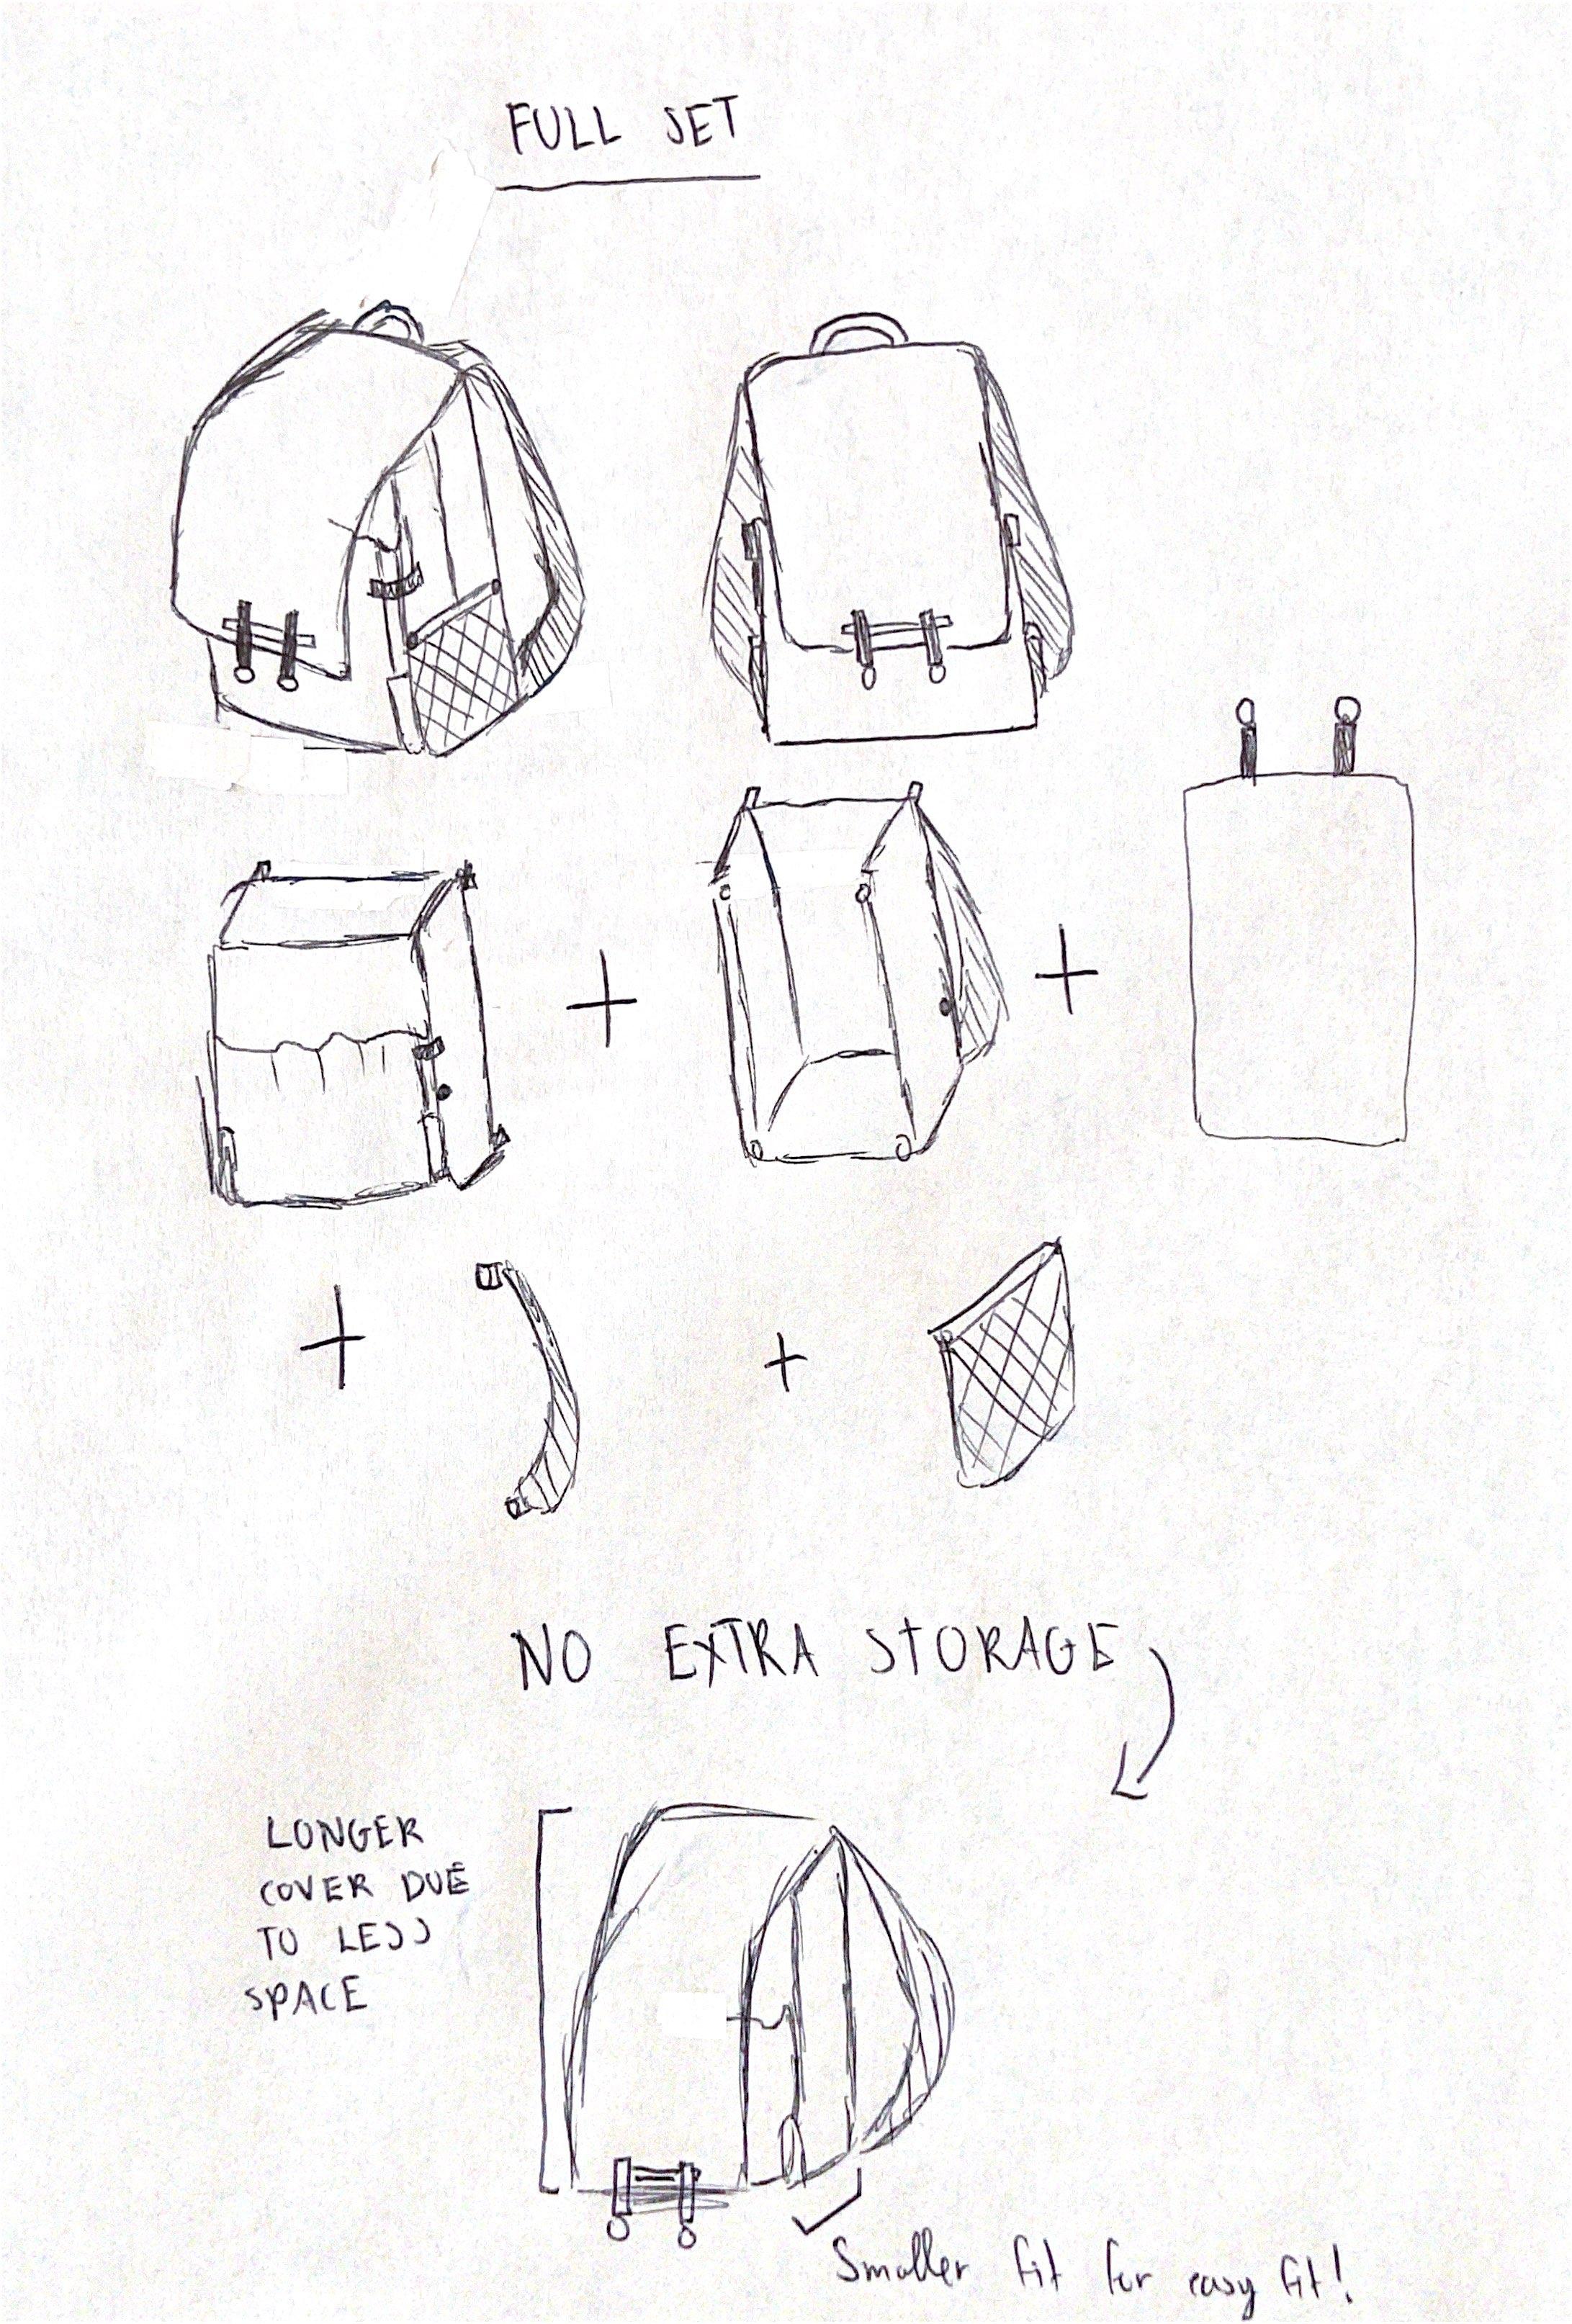 FULL SET
NO EXTRA STORAGE
LONGER
COVER DUE
TO LESS
SPACE
Smaller fit for easy fit!